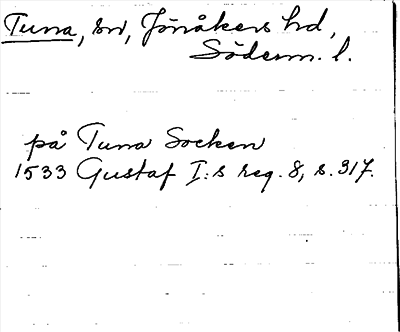 Tuna, sn, Jönåkers hd,
Söderm. l.
på Tuna Socken
1533 Gustaf I:s reg. 8, s. 317.